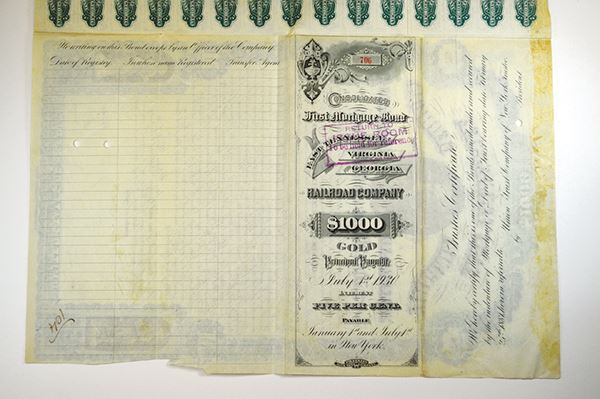 No writing on this Bond except by an Officer of the Company
Date of Registry. In whose name Registered. Transfer Agent
1044
706
CONSOLIDATED
First Mortgage Bond
RETURN TO
ROOM
EAST TENNESSEE
VIRGINIA
GEORGIA
RAILROAD COMPANY
$1000
GOLD
Principal Payable
July 1st 1930
INTEREST
FIVE PER CENT.
PAYABLE
January 1st and July 1st
in New York.
Trustee's Certificate.
We hereby certify that this is one of the Bonds mentioned and secured
by the indenture of Mortgage or Deed of Trust bearing date February
2nd 1881 herein referred to.
Union Trust Company of New York, Trustee.
by
President